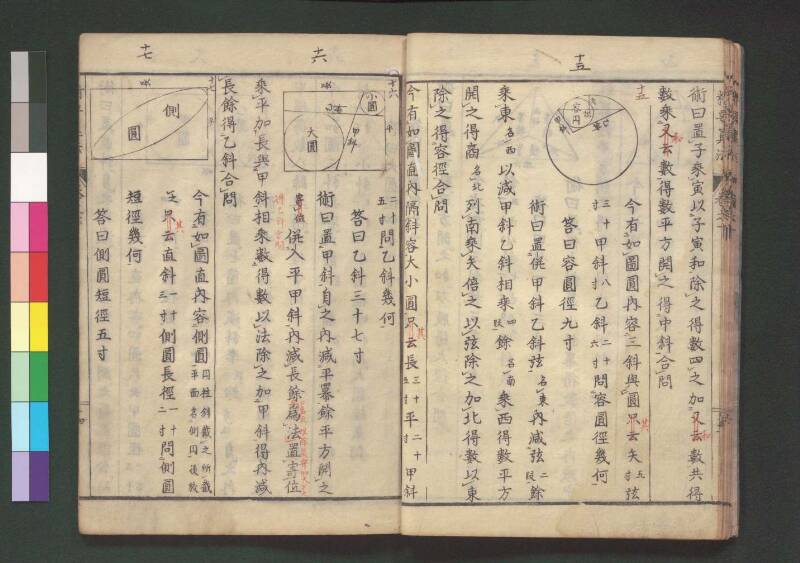 十五
術曰置子乘寅以子寅和除之得數四之加又云數共得
數乘又云數得數平方開之得中斜合問
十五
今有如圖圓內容三斜與圓只云矢五寸弦
三十寸甲斜八寸乙斜二十六寸問容圓徑幾何
答曰容圓徑九寸
術曰置併甲斜乙斜弦名東內減弦二段餘
乘東名西以減甲斜乙斜相乘四段餘名南乘西得數平方
開之得商名北列南乘矢倍之以弦除之加北得數以東
除之得容徑合問
今有如圖直內隔斜容大小圓只云長三十五寸平二十寸甲斜
十六
十六
二十五寸問乙斜幾何
答曰乙斜三十七寸
術曰置甲斜自之內減平冪餘平方開之
併入平甲斜內減長餘為法置寄位
乘平加長與甲斜相乘數得數以法除之加甲斜得內減
長餘得乙斜合問
小圓
大圓
甲斜
長
平
七
十七
今有如圖直內容側圓
只云直斜一十三寸側圓長徑一十二寸問側圓
短徑幾何
答曰側圓短徑五寸
側
圓
長
平